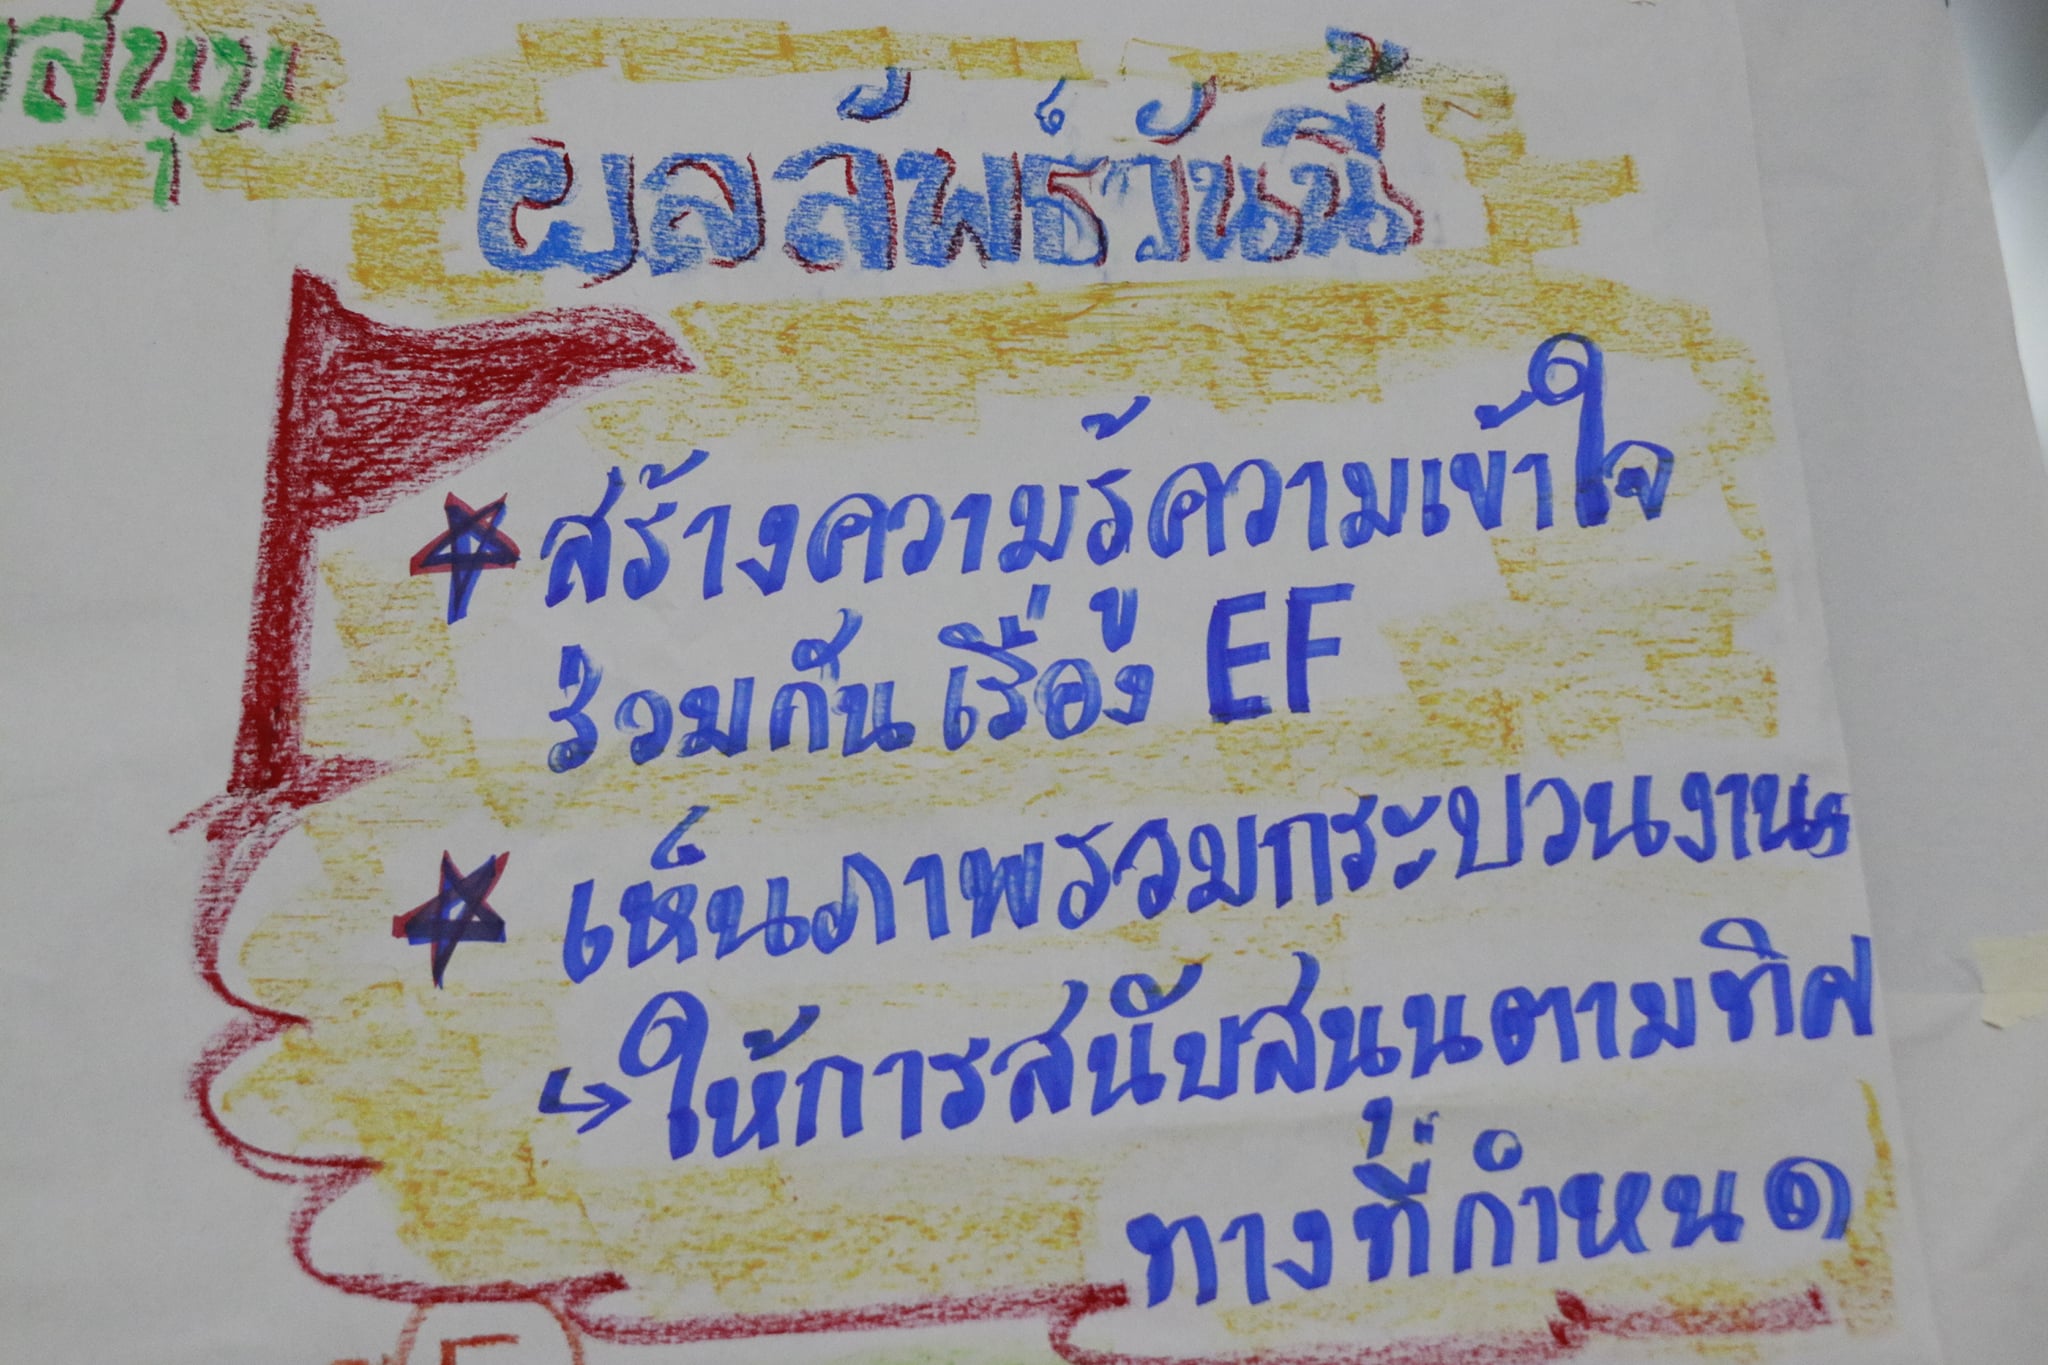 สนุน
ผลลัพธ์วันนี้
สร้างความรู้ความเข้าใจ
ร่วมกันเรื่อง EF
เห็นภาพรวมกระบวนงาน
↳ให้การสนับสนุนตามทิศ
ทางที่กำหนด